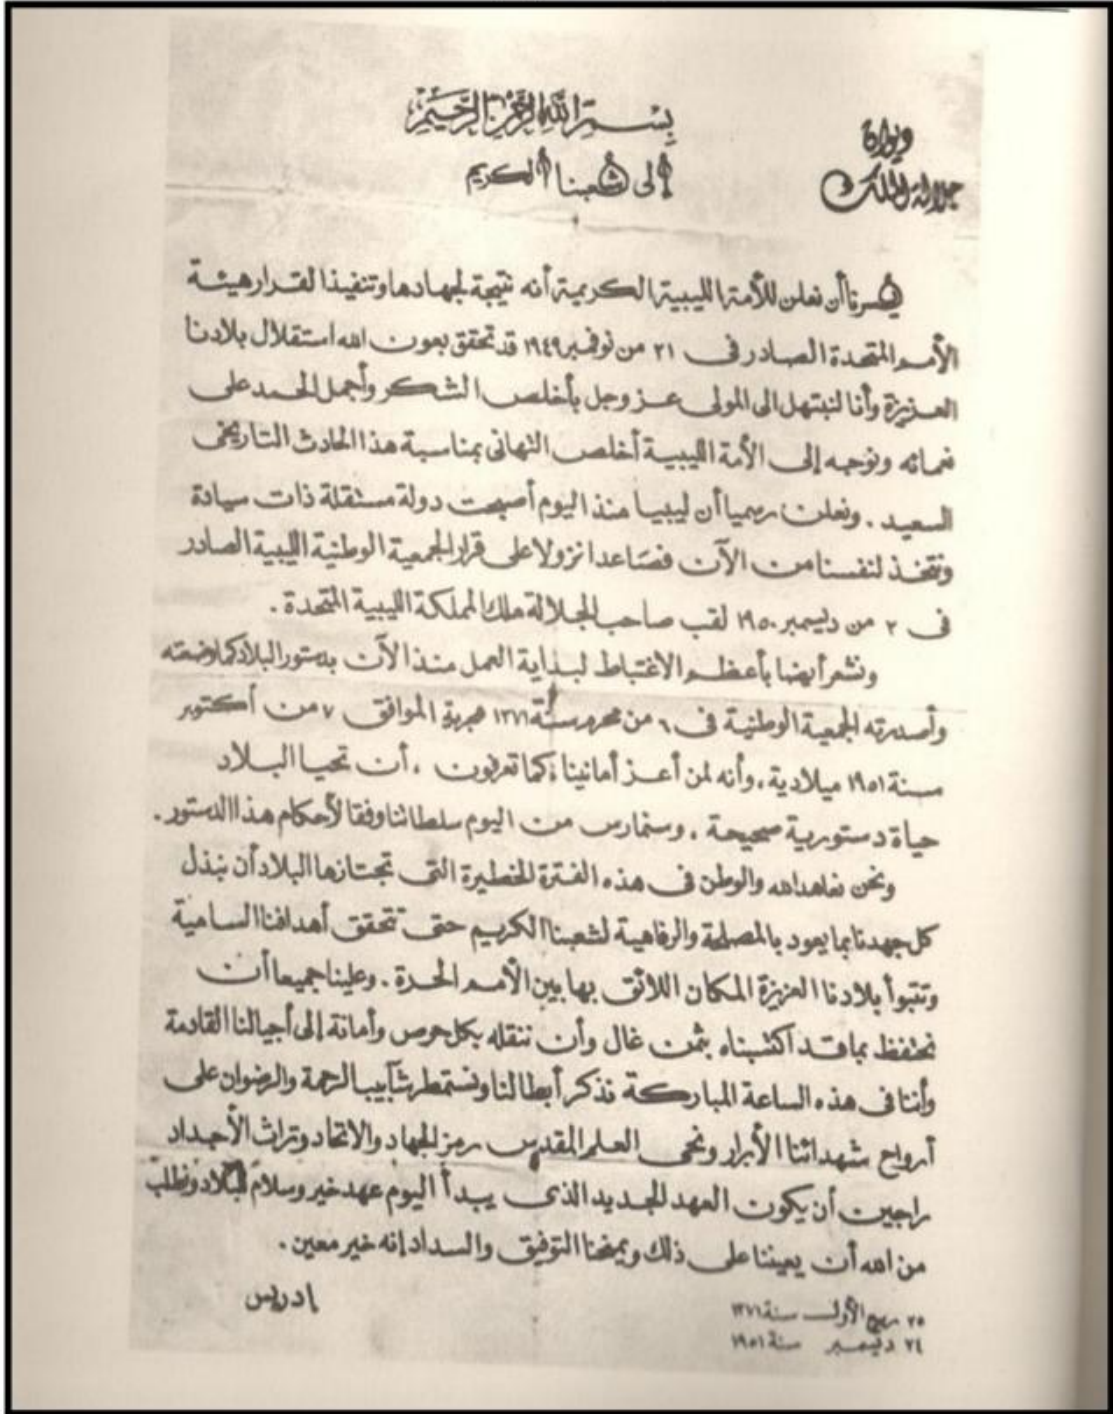 بسم الله الرحمن الرحيم
ديوان
جلالة الملك
إلى شعبنا الكريم
يسرنا أن نعلن للأمة الليبية الكريمة أنه نتيجة لجهادها وتنفيذا لقرار هيئة
الأمم المتحدة الصادر فى ٢١ من نوفمبر ١٩٤٩ قد تحقق بعون الله استقلال بلادنا
العزيزة وأنا لنبتهل الى المولى عز وجل بأخلص الشكر وأجمل الحمد على
نعمائه ونوجه إلى الأمة الليبية أخلص التهانى بمناسبة هذا الحادث التاريخى
السعيد . ونعلن رسميا أن ليبيا منذ اليوم أصبحت دولة مستقلة ذات سيادة
ونتخذ لنفسنا من الآن فصاعدا نزولا على قرار الجمعية الوطنية الليبية الصادر
فى ٢ من ديسمبر ١٩٥٠ لقب صاحب الجلالة ملك المملكة الليبية المتحدة .
ونشعر أيضا بأعظم الاغتباط لبداية العمل منذ الآن بدستور البلاد كما وضعته
وأصدرته الجمعية الوطنية فى ٦ من محرم سنة ١٣٧١ هجرية الموافق ٧ من أكتوبر
سنة ١٩٥١ ميلادية ، وأنه لمن أعز أمانينا ، كما تعرفون ، أن تحيا البلاد
حياة دستورية صحيحة ، وسنمارس من اليوم سلطاتنا وفقا لأحكام هذا الدستور .
ونحن نعاهد الله والوطن فى هذه الفترة الخطيرة التى تجتازها البلاد أن نبذل
كل جهدنا بما يعود بالمصلحة والرفاهية لشعبنا الكريم حتى تتحقق أهدافنا السامية
وتتبوأ بلادنا العزيزة المكان اللائق بها بين الأمم الحرة . وعلينا جميعا أن
نحتفظ بما قد اكتسبناه بثمن غال وأن ننقله بكل حرص وأمانة إلى أجيالنا القادمة
وأننا فى هذه الساعة المباركة نذكر أبطالنا ونستمطر شآبيب الرحمة والرضوان على
أرواح شهدائنا الأبرار ونحى العلم المقدس رمز الجهاد والاتحاد وتراث الأجداد
راجين أن يكون العهد الجديد الذى يبدأ اليوم عهد خير وسلام للبلاد ونطلب
من الله أن يعيننا على ذلك ويمنحنا التوفيق والسداد إنه خير معين .
إدريس
٢٥ ربيع الأول سنة ١٣٧١
٢٤ ديسمبر سنة ١٩٥١